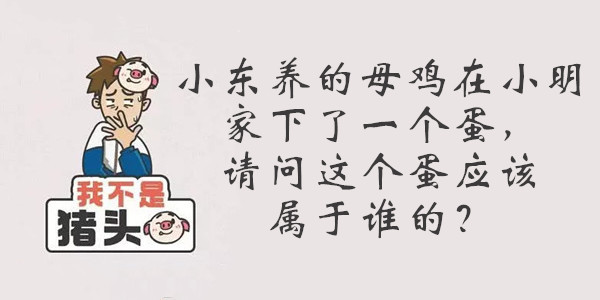 小东养的母鸡在小明
家下了一个蛋，
请问这个蛋应该
属于谁的？
我不是
猪头